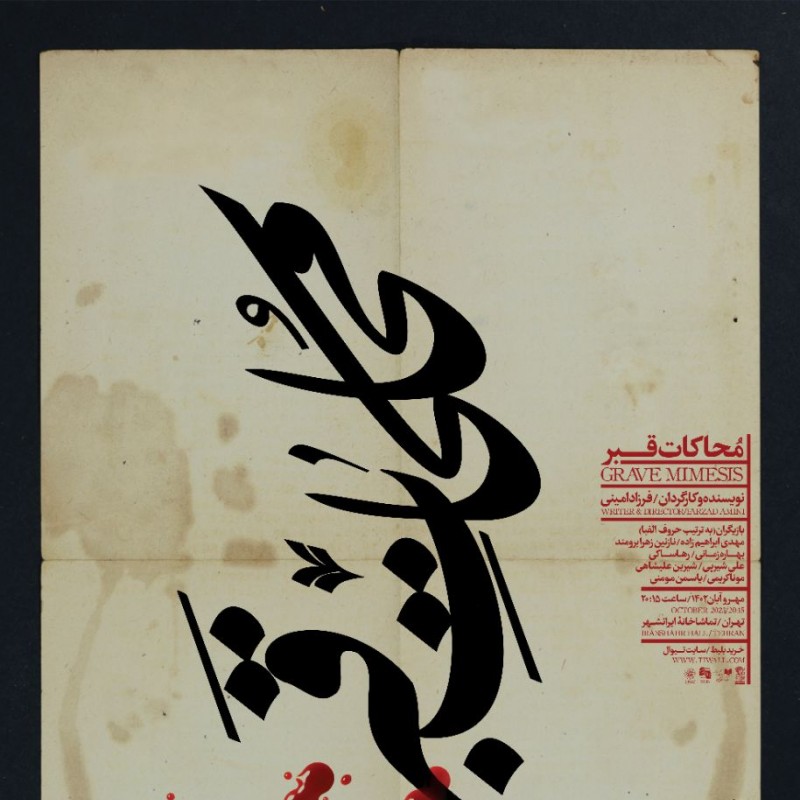 محاکات قبر
مُحاکات قبر
GRAVE MIMESIS
نویسنده و کارگردان / فرزاد امینی
WRITER & DIRECTOR/FARZAD AMINI
بازیگران (به ترتیب حروف الفبا)
مهدی ابراهیم زاده / نازنین زهرا برومند
بهاره زمانی / رها ساکی
علی شیربی / شیرین علیشاهی
مونا کریمی / یاسمن مومنی
مهر و آبان ۱۴۰۲ / ساعت ۲۰:۱۵
OCTOBER 2023/20:15
تهران / تماشاخانهٔ ایرانشهر
IRANSHAHR HALL / TEHRAN
خرید بلیط / سایت تیوال
WWW.TIWALL.COM